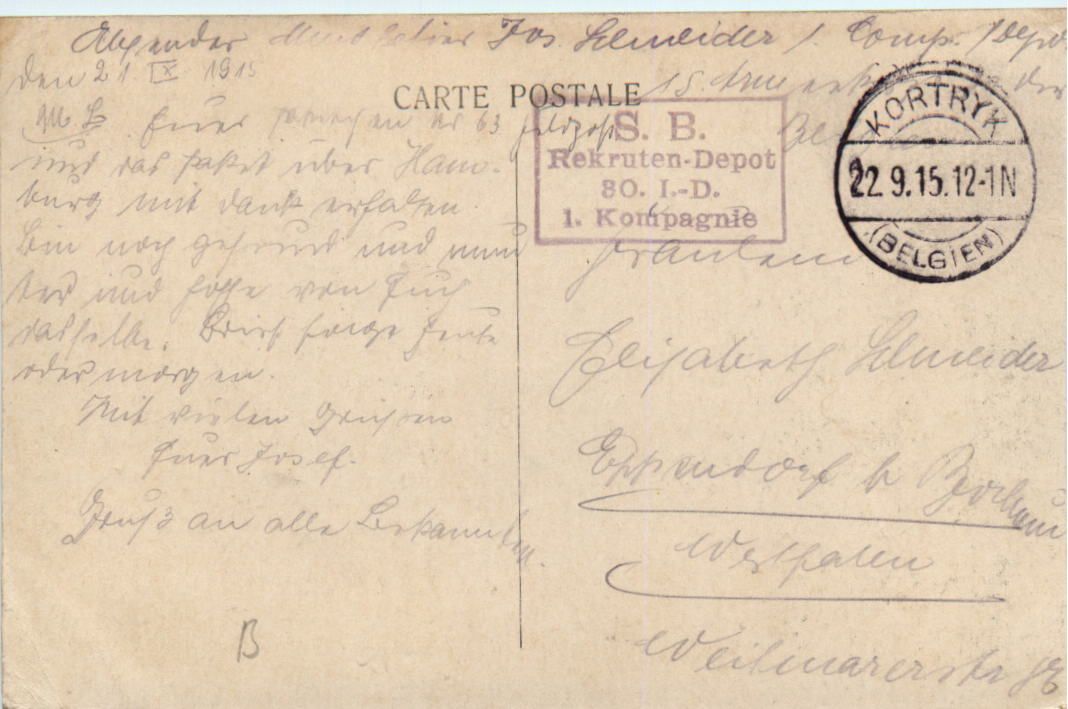 Absender Musketier Jos. Schneider 1. Comp. Depot
den 21 IX 1915
CARTE POSTALE
15. Armeekorps
M. L. Euer Nr 63 Feldpost
und das Paket über Ham-
burg mit dank erhalten.
Bin noch gesund und mun
ter und hoffe von Euch
dasselbe. Brief folgt heute
oder morgen.
Mit vielen Grüßen
Euer Josef.
Gruß an alle Bekannten.
B
S. B.
Rekruten-Depot
30. I.-D.
1. Kompagnie
KORTRYK
22.9.15.12-1N
(BELGIEN)
Fräulein
Elisabeth Schneider
Eppendorf b Bochum
Westfalen
Weitmarerstr